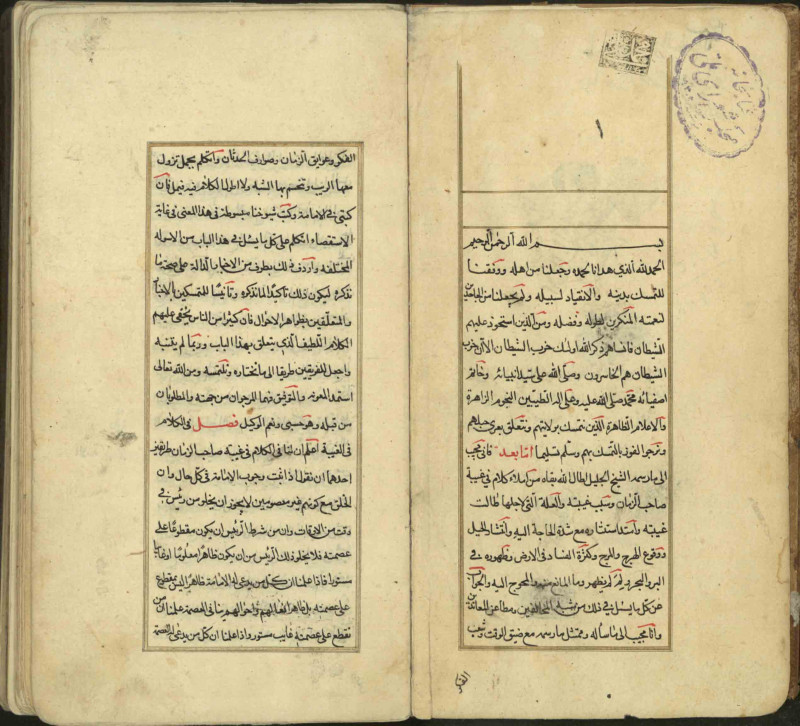 كتابخانه
مجلس شورای ملی
١
بسم الله الرحمن الرحيم
الحمد لله الذي هدانا لحمده وجعلنا من اهله ووفقنا
للتمسك بدينه والانقياد لسبيله ولم يجعلنا من الجاحدين
لنعمته المنكرين لطوله وفضله ومن الذين استحوذ عليهم
الشيطان فانساهم ذكر الله اولئك حزب الشيطان الا ان حزب
الشيطان هم الخاسرون وصلى الله على سيد انبيائه وخاتم
اصفيائه محمد صلى الله عليه وعلى اله الطيبين النجوم الزاهرة
والاعلام الظاهرة الذين نتمسك بولايتهم ونتعلق بعرى حبلهم
ونرجوا الفوز بالتمسك بهم وسلم تسليما اما بعد فاني مجيب
الى ما رسمه الشيخ الجليل اطال الله بقاه من املاء كلام في غيبة
صاحب الزمان وسبب غيبته والعلة التي لاجلها طالت
غيبته وامتد استتاره مع شدة الحاجة اليه وانتشار الحيل
ووقوع الهرج والمرج وكثرة الفساد في الارض وظهوره في
البر والبحر ولم لم يظهر وما المانع منه والمحوج اليه والجواب
عن كل ما يسئل في ذلك من شبه المخالفين ومطاعن المعاندين
وانا مجيب الى ما ساله وممتثل ما رسمه مع ضيق الوقت وشعب
الفكر
الفكر وعوايق الزمان وصوارف الحدثان واتكلم بجمل تزول
معها الريب وتنحسم بها الشبه ولا اطول الكلام فيه فيمل فان
كتبي في الامامة وكتب شيوخنا مبسوطة في هذا المعنى في غاية
الاستقصاء واتكلم على كل ما يسئل في هذا الباب من الاسوله
المختلفه واردف ذلك بطرف من الاخبار الدالة على صحة ما
نذكره ليكون ذلك تاكيدا لما نذكره وتانيسا للمتمسكين بالاخبار
والمتعلقين بظواهر الاحوال فان كثيرا من الناس يخفى عليهم
الكلام اللطيف الذي يتعلق بهذا الباب وربما لم يتبينه
واجعل للفريقين طريقا الى ما نختاره ونلتمسه ومن الله تعالى
استمد المعونه والتوفيق فهما المرجوان من جهته والمطلوبان
من قبله وهو حسبي ونعم الوكيل فصل في الكلام
في الغيبة اعلم ان لنا في الكلام في غيبة صاحب الزمان طريقين
احدهما ان نقول اذا ثبت وجوب الامامة في كل حال وان
الخلق مع كونهم غير معصومين لا يجوز ان يخلو من رئيس في
وقت من الاوقات وان من شرط الرئيس ان يكون مقطوعا على
عصمته فلا يخلو ذلك الرئيس من ان يكون ظاهرا معلوما او غايبا
مستورا فاذا علمنا ان كل من يدعى له الامامة ظاهرا ليس بمقطوع
على عصمته بل ظاهر افعالهم واحوالهم ينافي العصمة علمنا ان من
نقطع على عصمته غايب مستور واذا علمنا ان كل من يدعى له العصمة